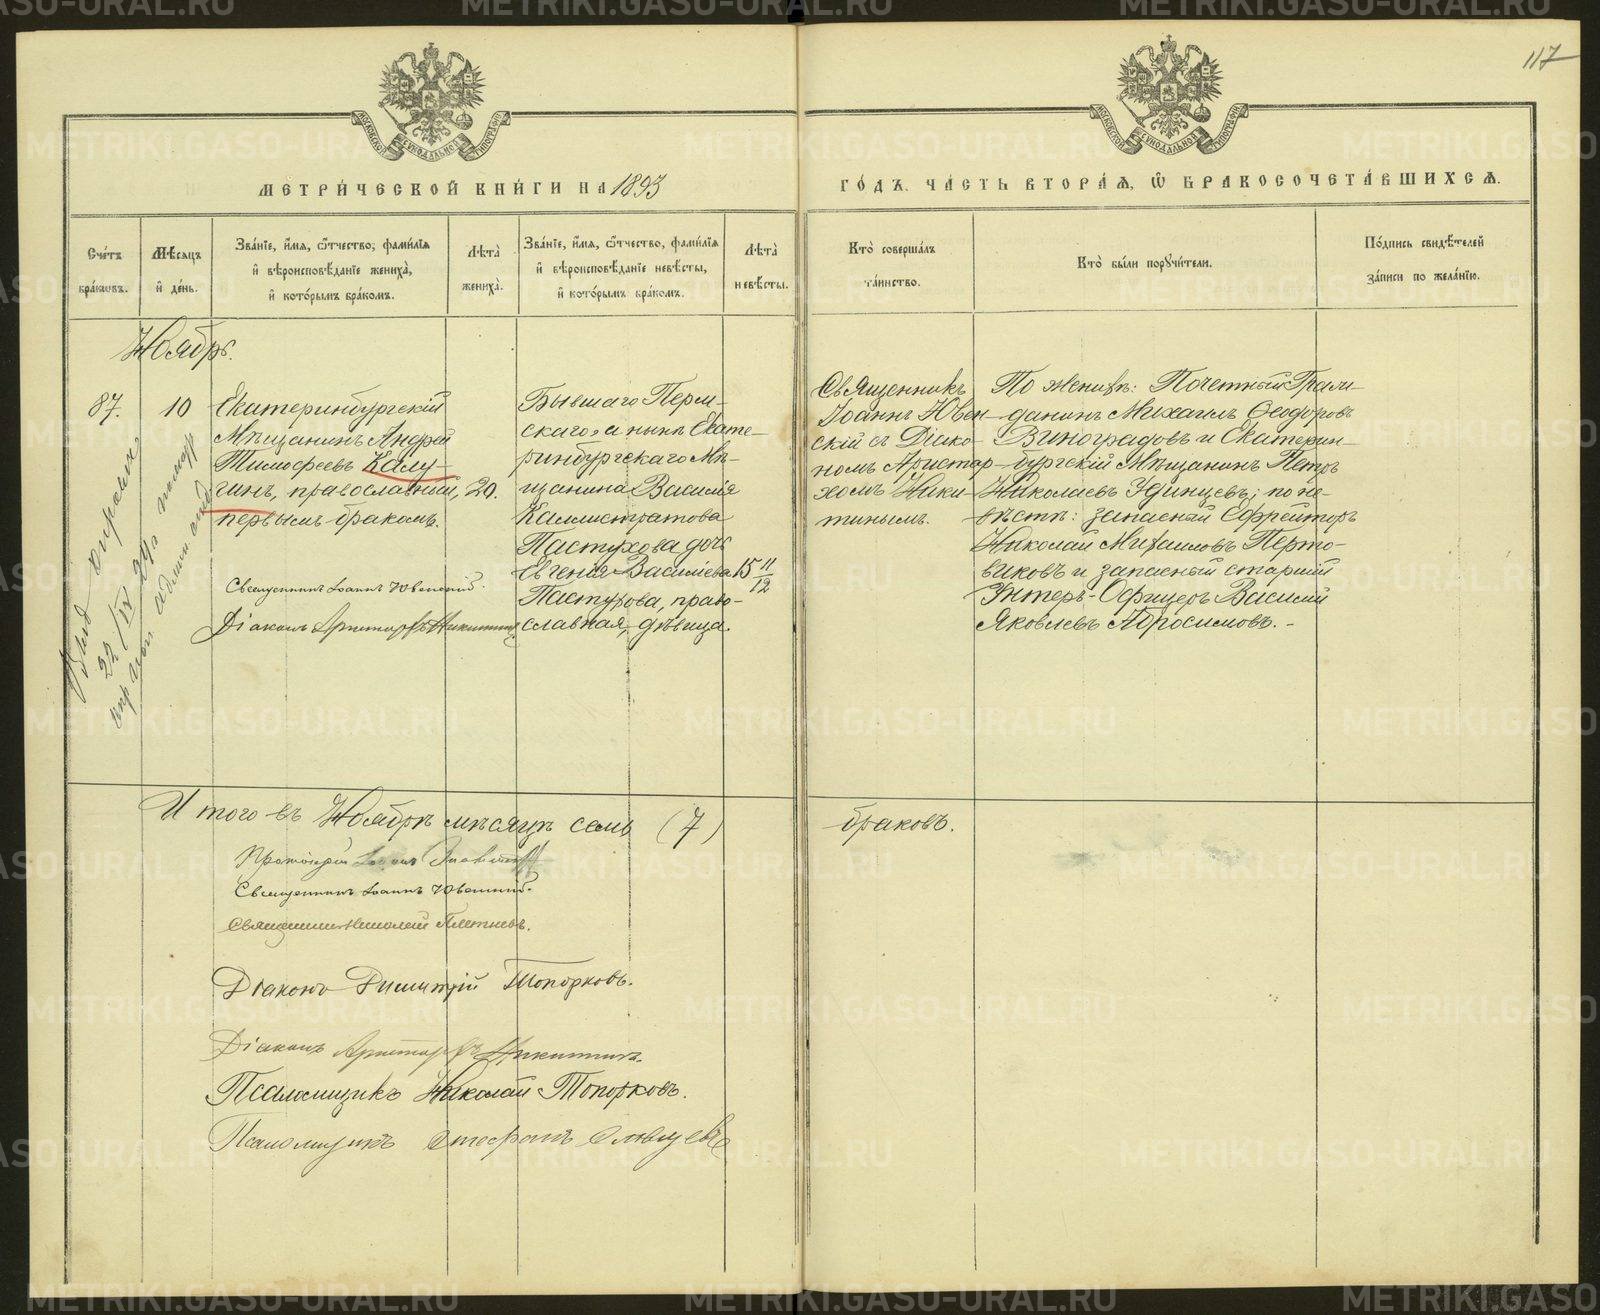 117
МОСКОВСКОЙ СѴНОДАЛЬНОЙ ТИПОГРАФІИ
МОСКОВСКОЙ СѴНОДАЛЬНОЙ ТИПОГРАФІИ
МЕТРИ́ЧЕСКОЙ КНИ́ГИ НА 1893
ГО́ДЪ. ЧА́СТЬ ВТОРА́Я, Ѡ҆ БРАКОСОЧЕТА́ВШИХСЯ.
Сче́тъ
бра́ковъ.
Мѣ́сяцъ
и҆ де́нь.
Зва́нїе, и҆́мя, ѻ҆́тчество, фами́лїя
и҆ вѣроисповѣ́данїе жениха̀,
и҆ кото́рымъ бра́комъ.
Лѣ́та
жениха̀.
Зва́нїе, и҆́мя, ѻ҆́тчество, фами́лїя
и҆ вѣроисповѣ́данїе невѣ́сты,
и҆ кото́рымъ бра́комъ.
Лѣ́та
невѣ́сты.
Кто̀ соверша́лъ
та́инство.
Кто̀ бы́ли порꙋчи́тели.
По́дпись свидѣ́телей
за́писи по жела́нїю.
Ноябрь.
87.
10
Екатеринбургскій
Мѣщанинъ Андрей
Тимофеевъ Калу-
гинъ, православный,
первымъ бракомъ.
20.
Священникъ Іоаннъ Ювенскій.
Діаконъ Аристархъ Никитинъ
Бывшаго Перм-
скаго, а нынѣ Екате-
ринбургскаго Мѣ-
щанина Василія
Каллистратова
Пастухова дочь
Евгенія Васильева
Пастухова, право-
славная, дѣвица.
15 11/12
Священникъ
Іоаннъ Ювен-
скій съ Діако-
номъ Аристар-
хомъ Ники-
тинымъ.
По женихѣ: Почетный Граж-
данинъ Михаилъ Ѳеодоровъ
Виноградовъ и Екатерин-
бургскій Мѣщанинъ Петръ
Николаевъ Удинцевъ; по не-
вѣстѣ: запасный Ефрейторъ
Николай Михаиловъ Перто-
виковъ и запасный старшій
Унтеръ-Офицеръ Василій
Яковлевъ Абросимовъ.-
22/IV
Итого въ Ноябрѣ мѣсяцѣ семь (7)
браковъ.
Протоіерей Іоаннъ
Священникъ Іоаннъ Ювенскій.
Священникъ Николай Плетневъ.
Діаконъ Димитрій Топорковъ.
Діаконъ Аристархъ Никитинъ.
Псаломщикъ Николай Топорковъ.
Псаломщикъ
METRIKI.GASO-URAL.RU